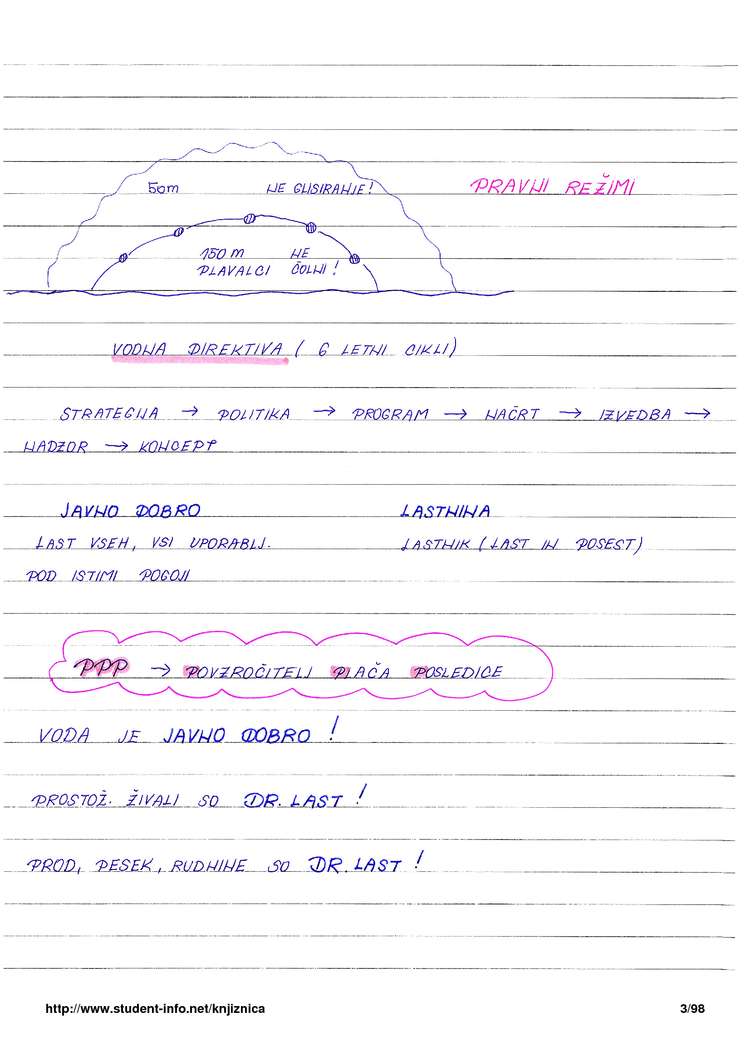 PRAVNI REŽIMI
50m NE GLISIRANJE!
150 m NE
PLAVALCI ČOLNI!
VODNA DIREKTIVA ( 6 LETNI CIKLI)
STRATEGIJA → POLITIKA → PROGRAM → NAČRT → IZVEDBA →
NADZOR → KONCEPT
JAVNO DOBRO LASTNINA
LAST VSEH, VSI UPORABLJ. LASTNIK (LAST IN POSEST)
POD ISTIMI POGOJI
PPP → POVZROČITELJ PLAČA POSLEDICE
VODA JE JAVNO DOBRO!
PROSTOŽ. ŽIVALI SO DR. LAST!
PROD, PESEK, RUDNINE SO DR. LAST!
http://www.student-info.net/knjiznica 3/98